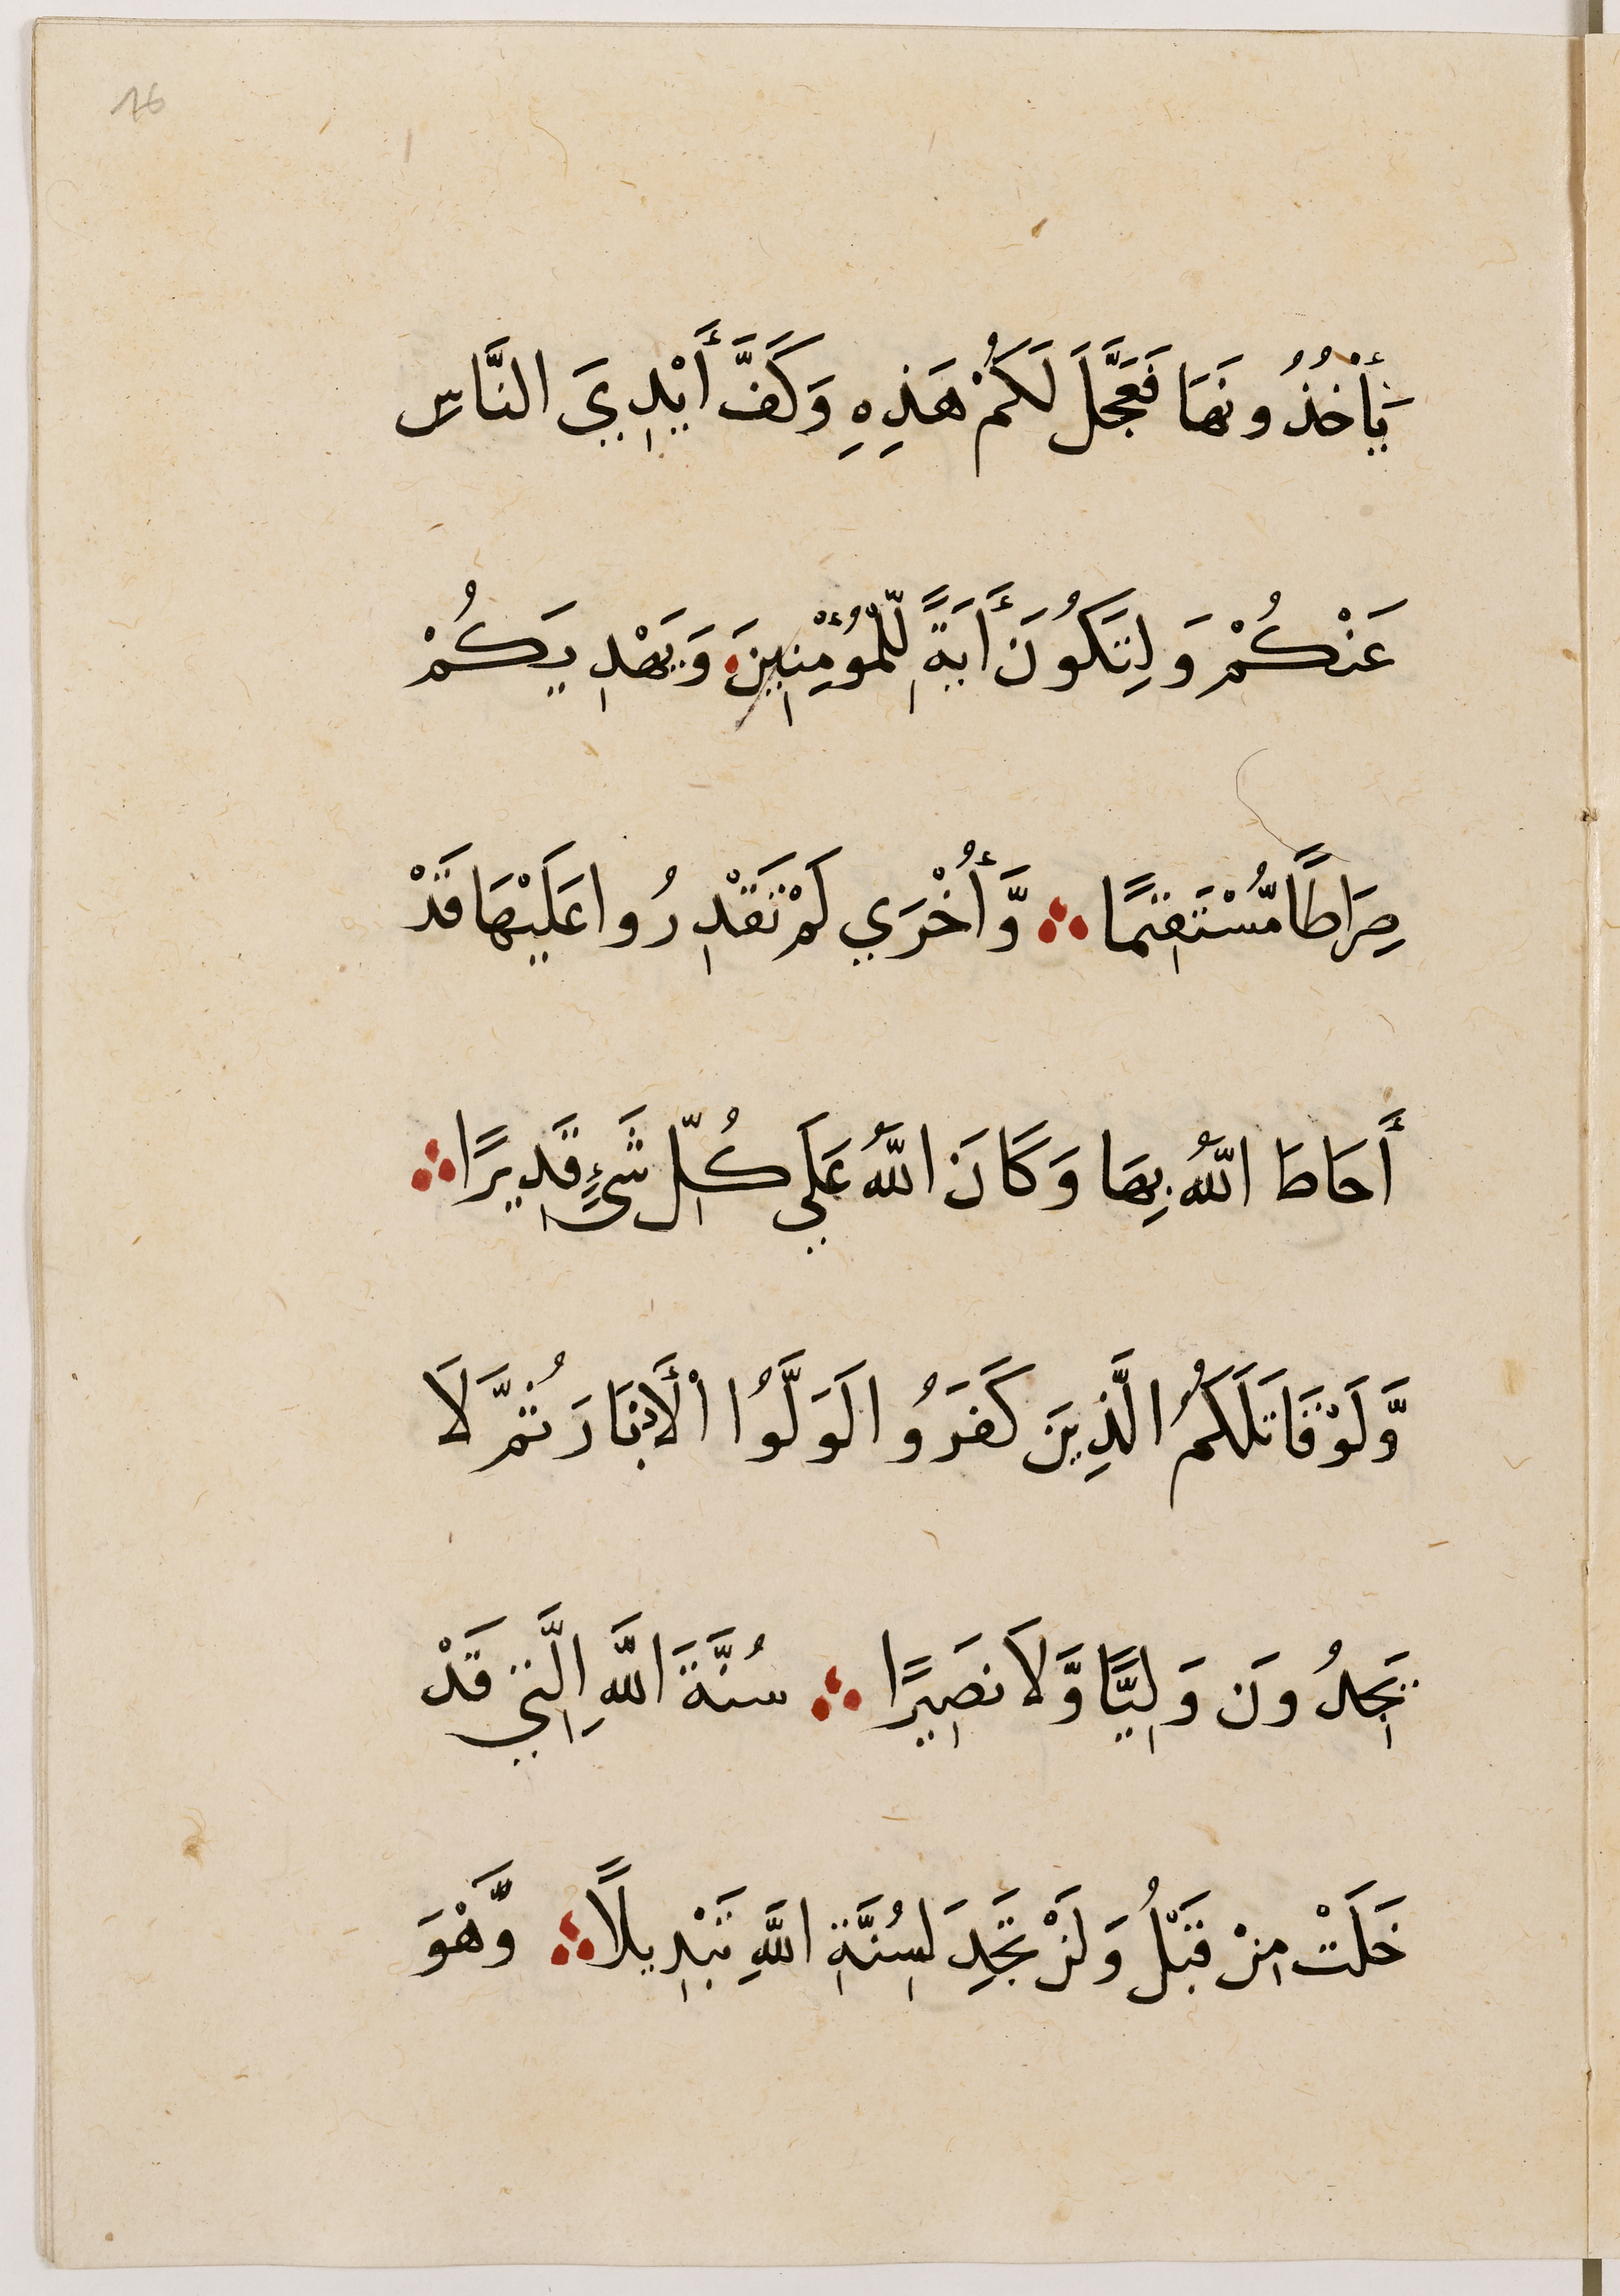 16
يَأْخُذُونَهَا فَعَجَّلَ لَكُمْ هَذِهِ وَكَفَّ أَيْدِيَ النَّاسِ
عَنْكُمْ وَلِتَكُونَ أَايَةً لِّلْمُؤْمِنِينَ وَيَهْدِيَكُمْ
صِرَاطًا مُّسْتَقِيمًا ۞ وَّأُخْرَي لَمْ تَقْدِرُوا عَلَيْهَا قَدْ
أَحَاطَ اللَّهُ بِهَا وَكَانَ اللَّهُ عَلَي كُلِّ شَيْءٍ قَدِيرًا ۞
وَّلَوْ قَاتَلَكُمُ الَّذِينَ كَفَرُوا لَوَلَّوُا الْأَدْبَارَ ثُمَّ لَا
يَجِدُونَ وَلِيًّا وَّلَا نَصِيرًا ۞ سُنَّةَ اللَّهِ الَّتِي قَدْ
خَلَتْ مِنْ قَبْلُ وَلَنْ تَجِدَ لِسُنَّةِ اللَّهِ تَبْدِيلًا ۞ وَّهْوَ